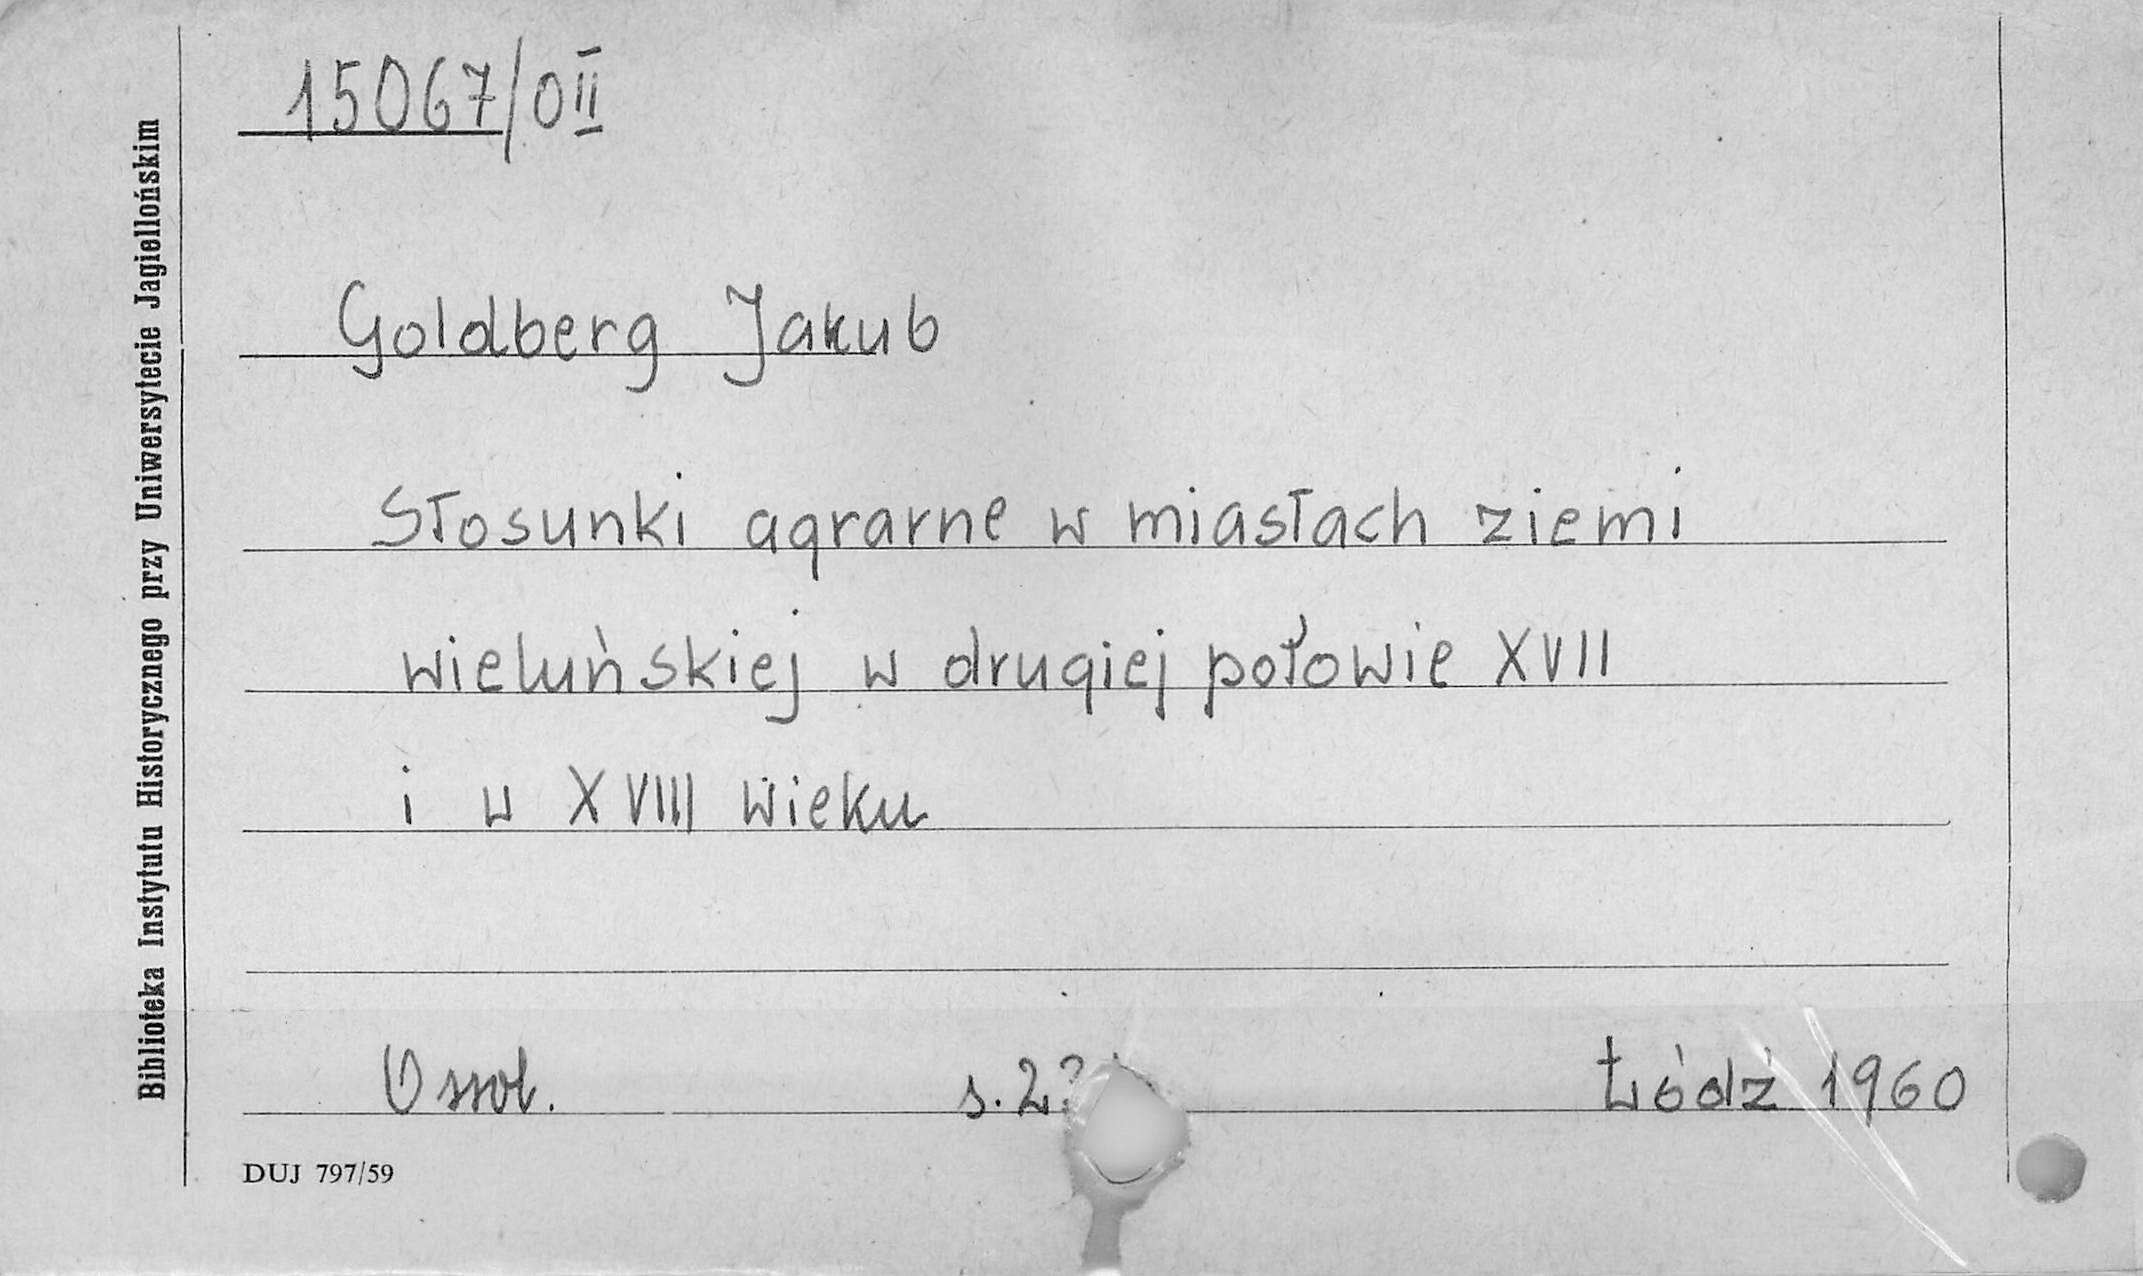 15067/0II
Goldberg Jakub
Stosunki agrarne w miastach ziemi
wieluńskiej w drugiej połowie XVII
i w XVIII wieku
Ossol.
s.
Łódź 1960
DUJ 797/59
Biblioteka Instytutu Historycznego przy Uniwersytecie Jagiellońskim